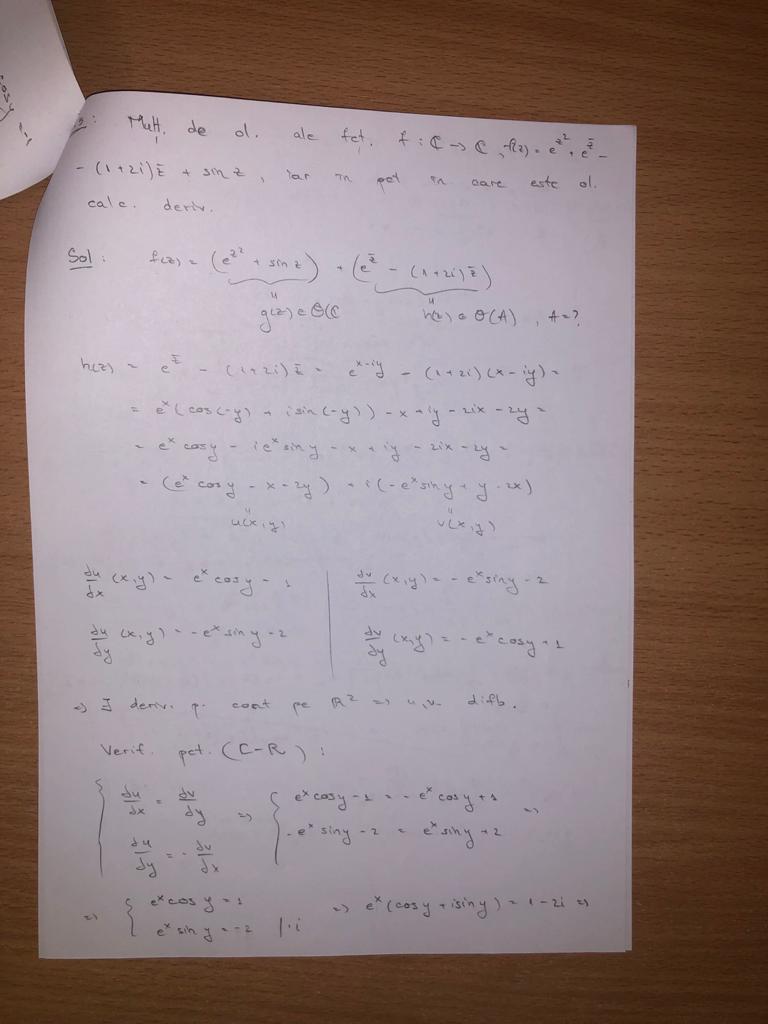 cosy = 1
: Mulţ. de ol. ale fct. f : ℂ → ℂ, f(z) = e^{z²} + e^{z̄} -
- (1+2i)z̄ + sin z, iar în pct în care este ol.
calc. deriv.
Sol : f(z) = (e^{z²} + sin z) + (e^{z̄} - (1+2i)z̄)
g(z) ∈ O(ℂ h(z) ∈ O(A), A=?
h(z) = e^{z̄} - (1+2i)z̄ = e^{x-iy} - (1+2i)(x-iy) =
= e^x(cos(-y) + i sin(-y)) - x + iy - 2ix - 2y =
= e^x cosy - ie^x siny - x + iy - 2ix - 2y =
= (e^x cosy - x - 2y) + i(-e^x siny + y - 2x)
u(x,y) v(x,y)
∂u/∂x (x,y) = e^x cosy - 1 | ∂v/∂x (x,y) = - e^x siny - 2
∂u/∂y (x,y) = -e^x siny - 2 | ∂v/∂y (x,y) = - e^x cosy + 1
=> ∃ deriv. p. cont pe ℝ² => u,v difb.
Verif. pct. (C-R) :
{ ∂u/∂x = ∂v/∂y => { e^x cosy - 1 = - e^x cosy + 1 =>
∂u/∂y = - ∂v/∂x - e^x siny - 2 = e^x siny + 2
=> { e^x cosy = 1 => e^x(cosy + isiny) = 1 - 2i =>
e^x siny = -2 | · i